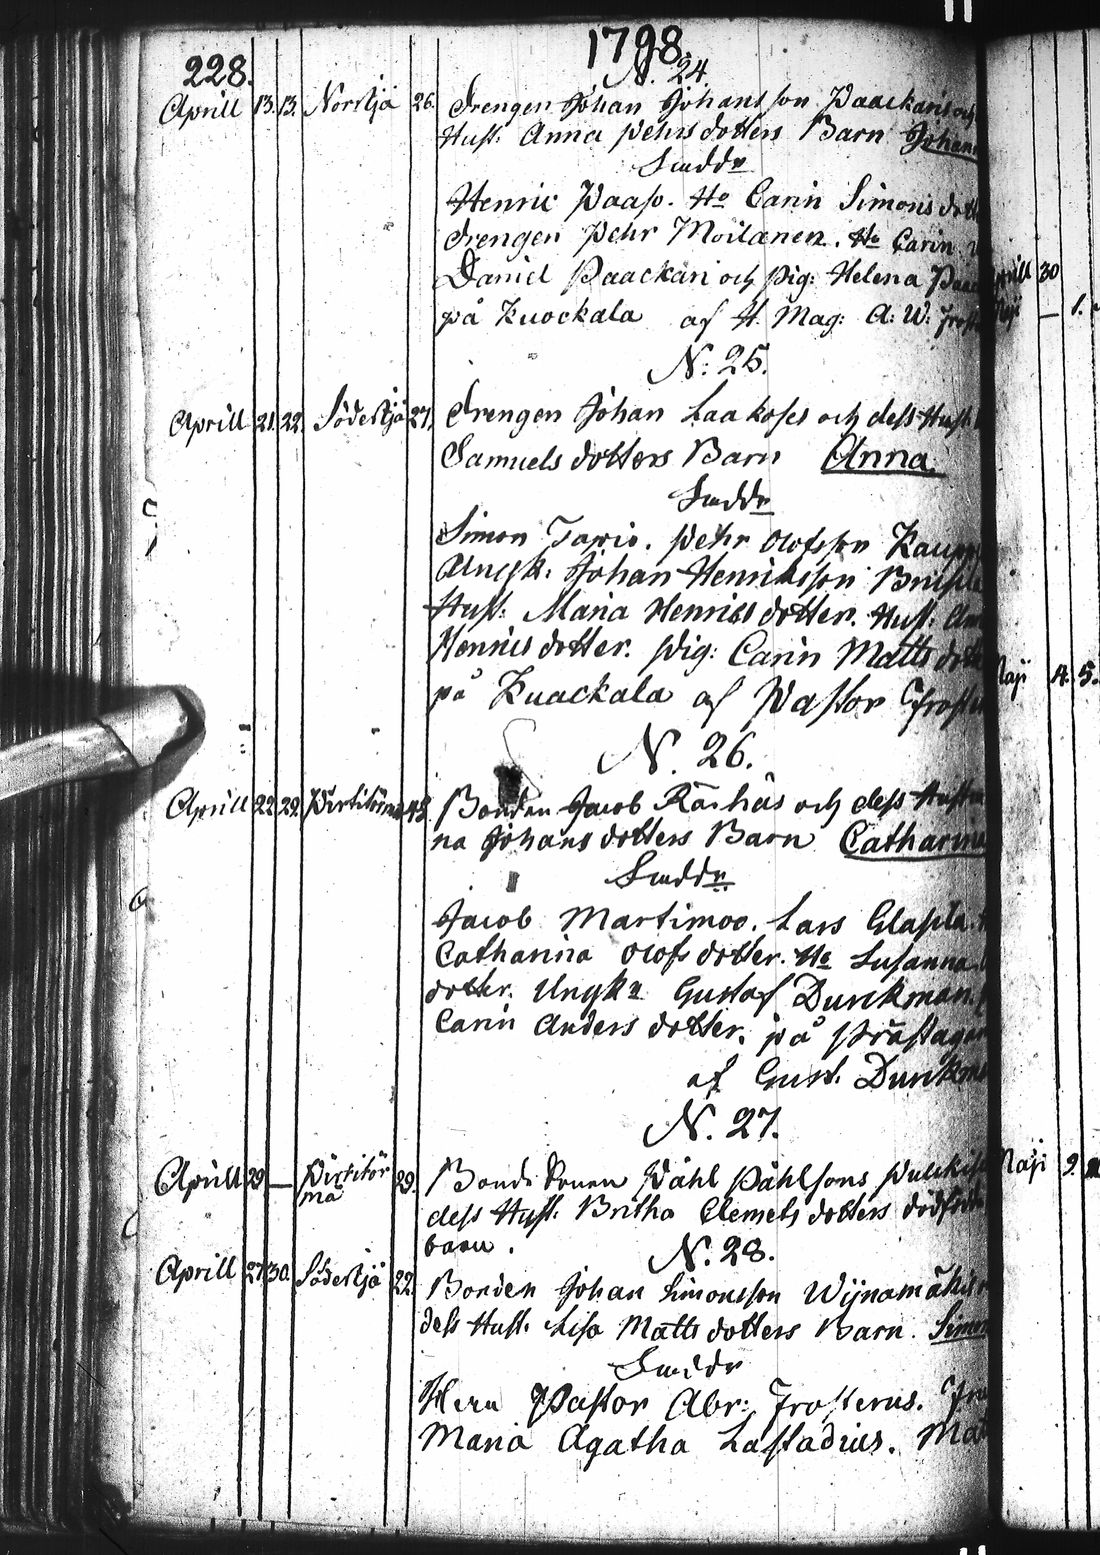 1798.
228.
N. 24.
Aprill 13. 13. Norrsjö 26. Drengen Johan Johansson Paackaris och
Hust: Anna Pehrsdotters Barn Johann
Suddr
Henric Paaso. Ho Carin Simonsdott
Drengen Pehr Moilanen. Ho Carin
Daniel Paackari och Pig: Helena Paac
på Kuockala af H. Mag: A: W: Frost
N: 25.
Aprill 21. 22. Södersjö 27. Drengen Johan Laakoses och dess Hust.
Samuelsdotters Barn Anna.
Suddr
Simon Tapio. Pehr Olofsson Kaupp
Ungk: Johan Henriksson
Hust: Maria Henricsdotter. Hust: An
Henricsdotter. Pig: Carin Mattsdott
på Kuackala af Pastor Froste
N. 26.
Aprill 22. 22. Pirttiköma 43. Bonden Jacob Räihäs och dess Hustru
na Johansdotters Barn Catharina
Suddr
Jacob Martimoo. Lars
Catharina Olofsdotter. Ho Susanna
dotter. Ungkn Gustaf Durckman.
Carin Andersdotter. på Prästagår
af Gust. Durckma
N. 27.
Aprill 29 — Pirttikör 29. Bonde Sonen Påhl Påhlsons
ma dess Hust: Britha Clemetsdotters dödföd
barn.
N. 28.
Aprill 27. 30. Södersjö 22. Bonden Johan Simonsson Wijnamäkis
dess Hust: Lisa Mattsdotters Barn. Simon
Suddr
Herr Pastor Abr: Frosterus. Fru
Maria Agatha Lastadius. Mat
Aprill 30
Maji — 1.
Maji 4. 5.
Maji 9.